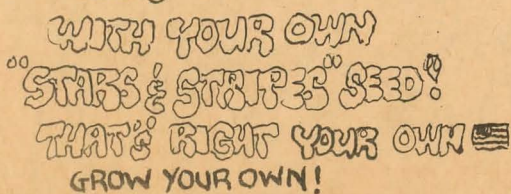 WITH YOUR OWN
"STARS & STRIPES" SEED!
THAT'S RIGHT YOUR OWN
GROW YOUR OWN!